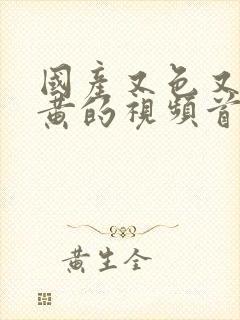 國產又色又
黃的視頻首
黃生全